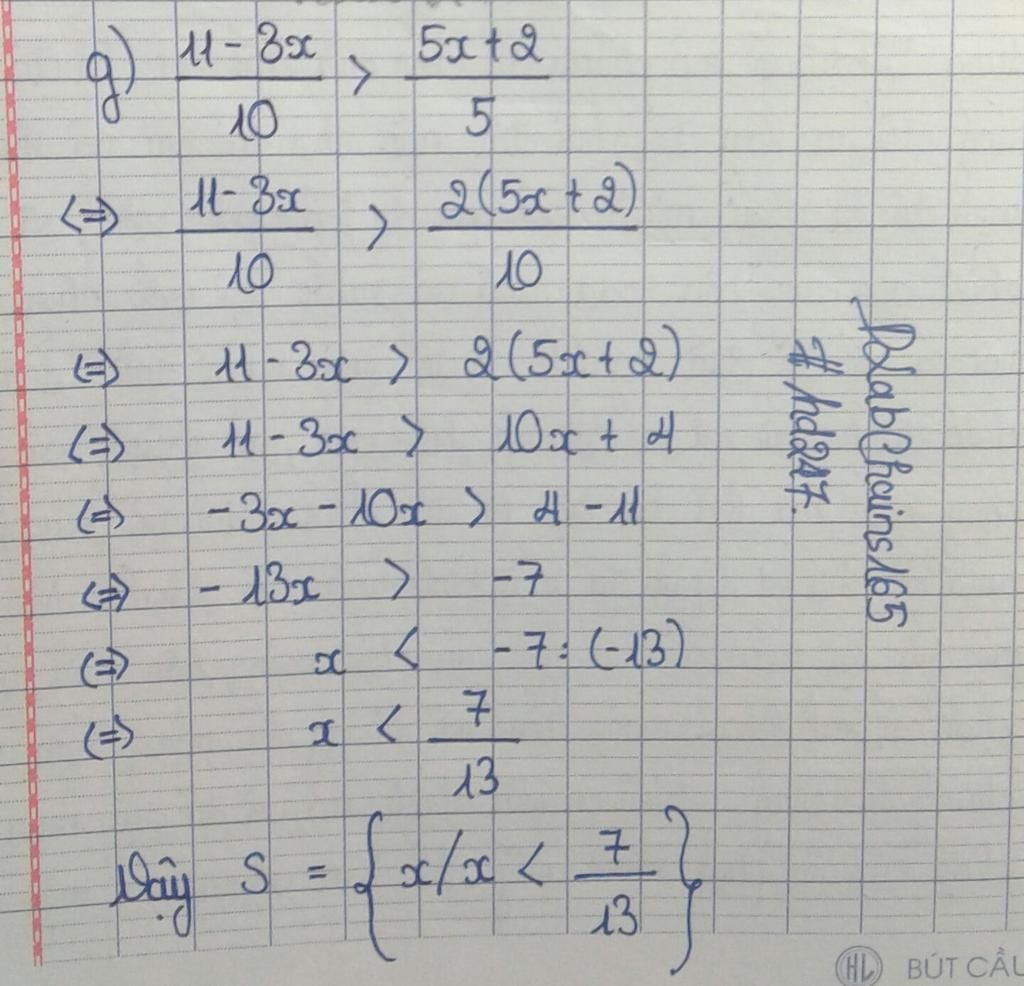 g) (11 - 3x)/10 > (5x + 2)/5
<=> (11 - 3x)/10 > 2(5x + 2)/10
<=> 11 - 3x > 2(5x + 2)
<=> 11 - 3x > 10x + 4
<=> -3x - 10x > 4 - 11
<=> -13x > -7
<=> x < -7 : (-13)
<=> x < 7/13
Vậy S = {x/x < 7/13}
#hd247.
HL BÚT CẦU